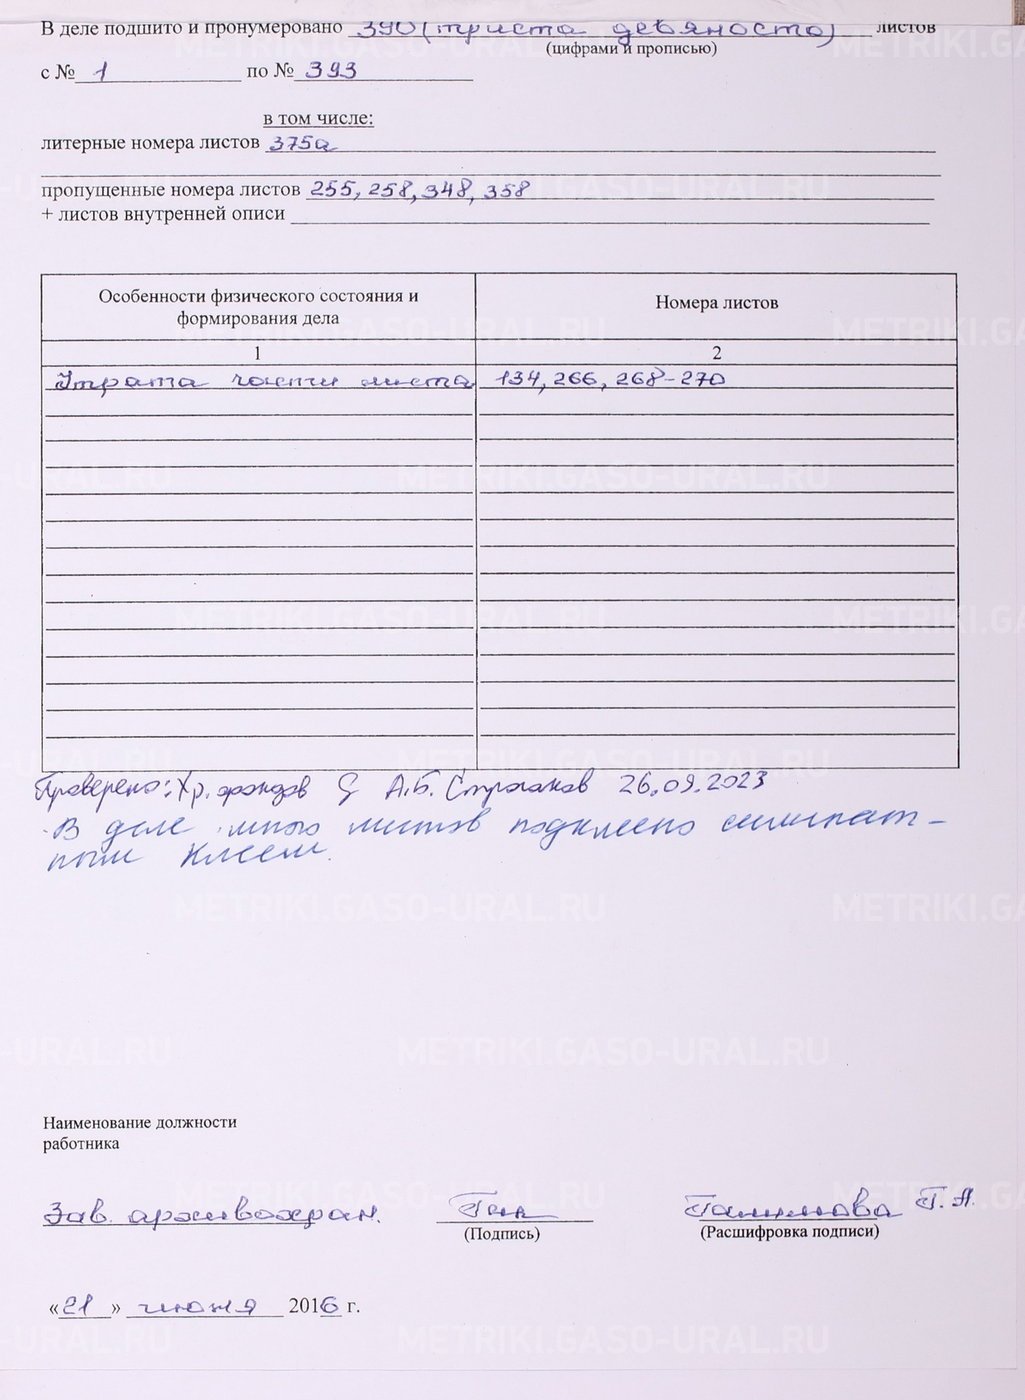 В деле подшито и пронумеровано 390 (триста девяносто) листов
(цифрами и прописью)
с № 1 по № 393
в том числе:
литерные номера листов 375а
пропущенные номера листов 255, 258, 348, 358
+ листов внутренней описи
Особенности физического состояния и формирования дела
Номера листов
1 2
Утрата части листа 134, 266, 268-270
Проверено: Хр. фондов А.Б. 26.09.2023
В деле много листов подклеено силикат-
ным клеем.
Наименование должности
работника
Зав. архивохран. Т.А.
(Подпись) (Расшифровка подписи)
«21» июня 2016 г.
METRIKI.GASO-URAL.RU